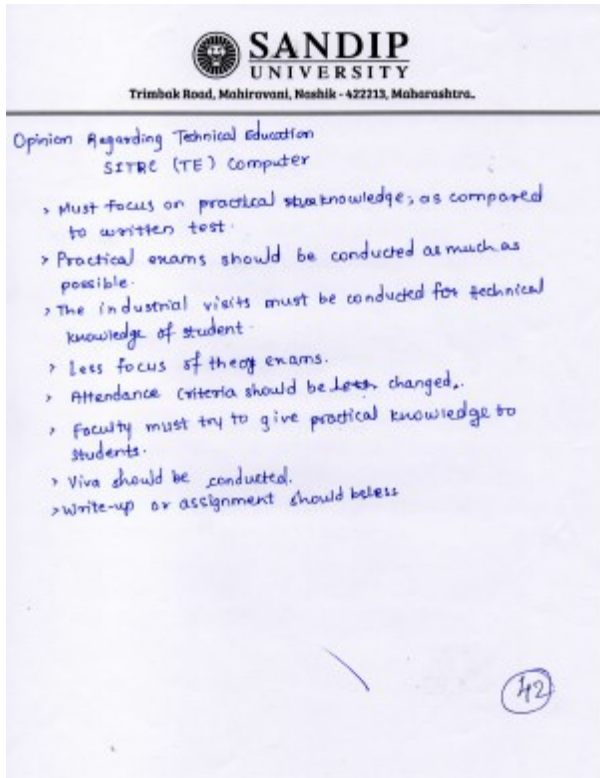 SANDIP
UNIVERSITY
Trimbak Road, Mahiravani, Nashik - 422213, Maharashtra.
Opinion Regarding Technical Education
SITRC (TE) Computer
> Must focus on practical knowledge, as compared
to written test.
> Practical exams should be conducted as much as
possible.
> The industrial visits must be conducted for technical
knowledge of student.
> Less focus of theory exams.
> Attendance criteria should be less changed.
> Faculty must try to give practical knowledge to
students.
> Viva should be conducted.
> Write-up or assignment should be less
42